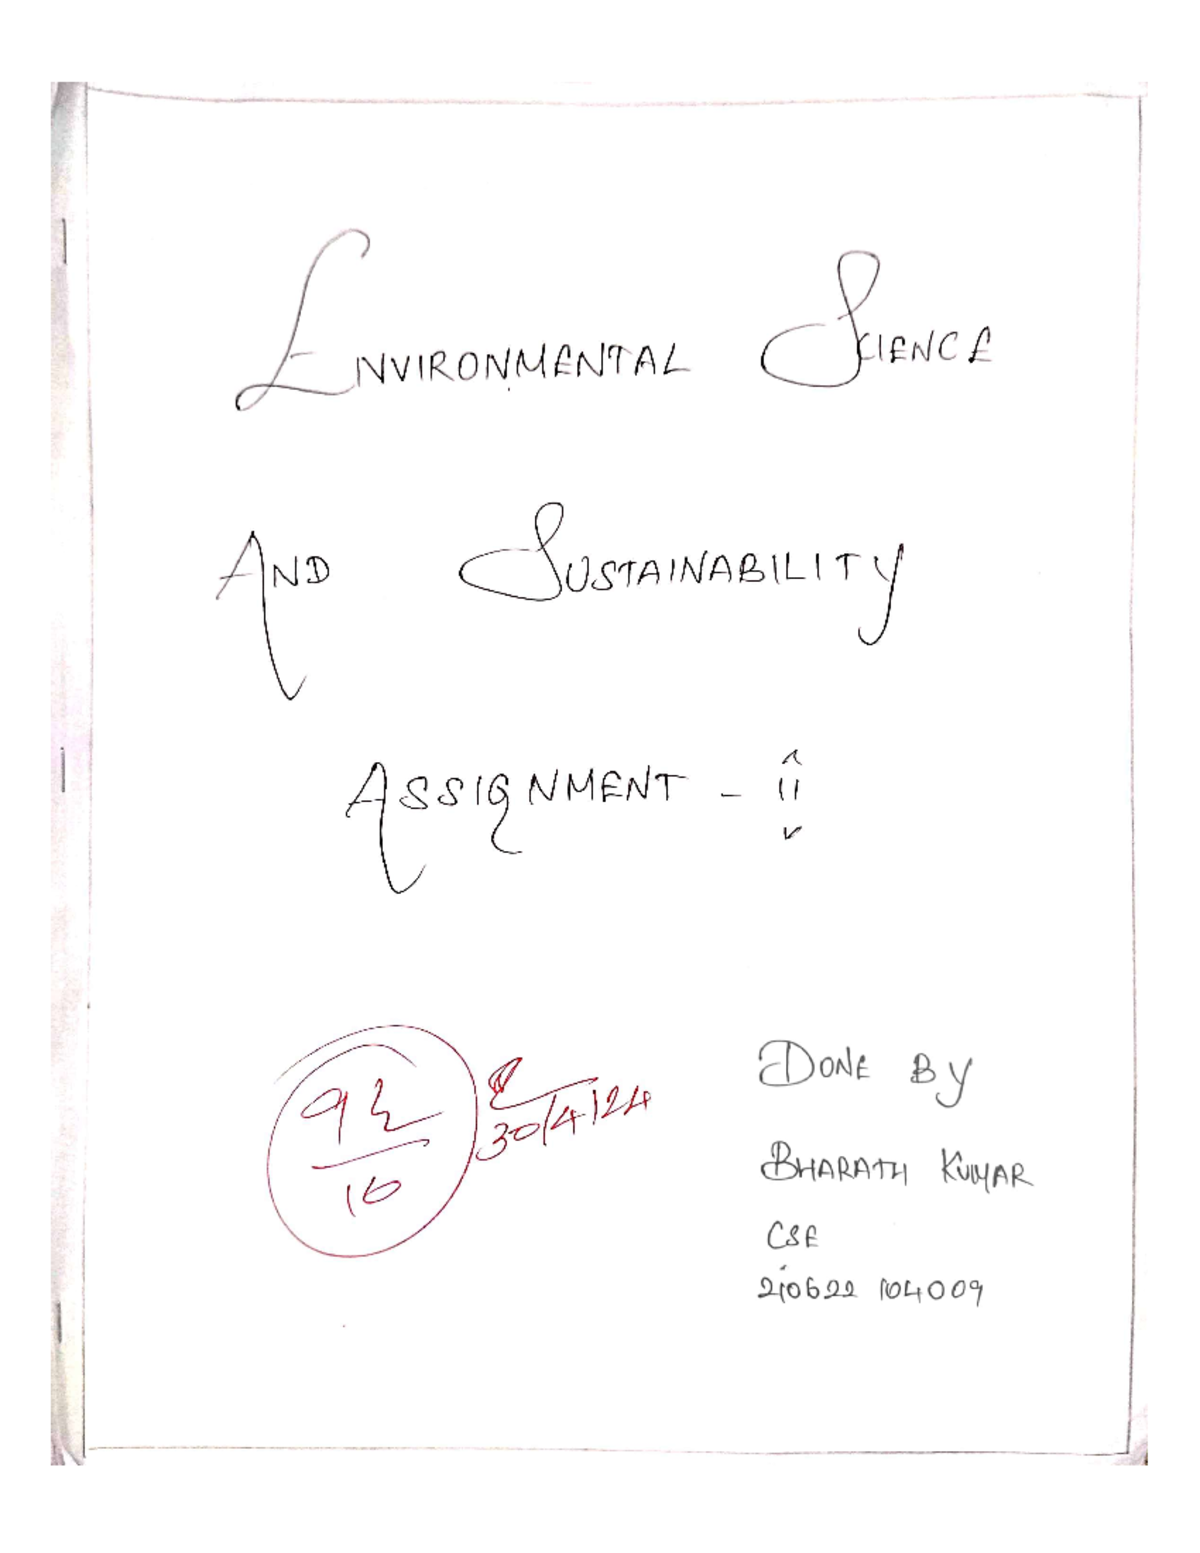 ENVIRONMENTAL SCIENCE
AND SUSTAINABILITY
ASSIGNMENT - ii
DONE BY
BHARATH KUMAR
CSE
210622 104009
10
30/4/24